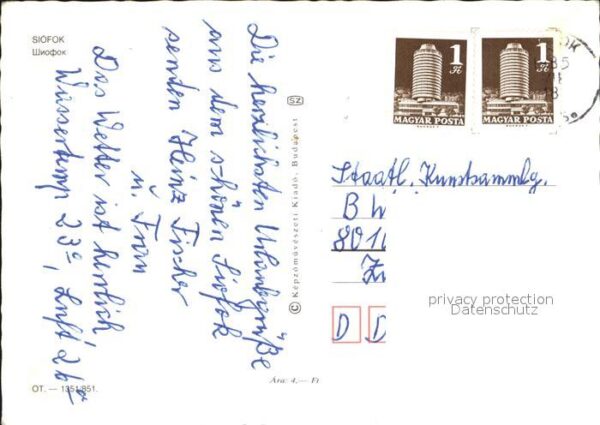 SIÓFOK
Шиофок
Die herzlichsten Urlaubsgrüße
aus dem schönen Siofok
senden Heinz Fischer
u. Frau
Das Wetter ist herrlich
Wassertemp 23°, Luft 26°
OT. — 1351/851.
SZ
© Képzőművészeti Kiadó, Budapest
Ára: 4,— Ft
1 Ft
MAGYAR POSTA
1 Ft
MAGYAR POSTA
OK
85
18
Staatl. Kunstsammlg.
B W
801
D D
privacy protection
Datenschutz